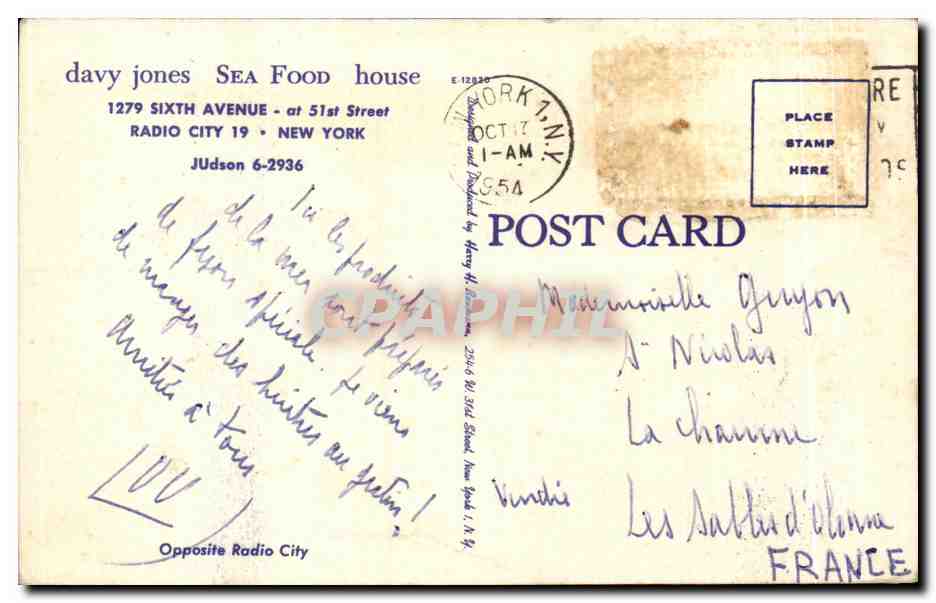 davy jones SEA FOOD house
1279 SIXTH AVENUE - at 51st Street
RADIO CITY 19 • NEW YORK
JUdson 6-2936
Ici les produits
de la mer sont préparés
de façon spéciale. Je viens
de manger des huitres au gratin!
Amitiés à tous
LOU
Opposite Radio City
E-12820
Designed and Produced by Harry H. 254-6 W 31st Street, New York 1, N.Y.
YORK 1, N.Y.
OCT 17
1-AM
1954
RE
PLACE
STAMP
HERE
POST CARD
CPAPHIL
Mademoiselle Guyon
St Nicolas
La Chaume
Les Sables d'Olonne
Vendée
FRANCE